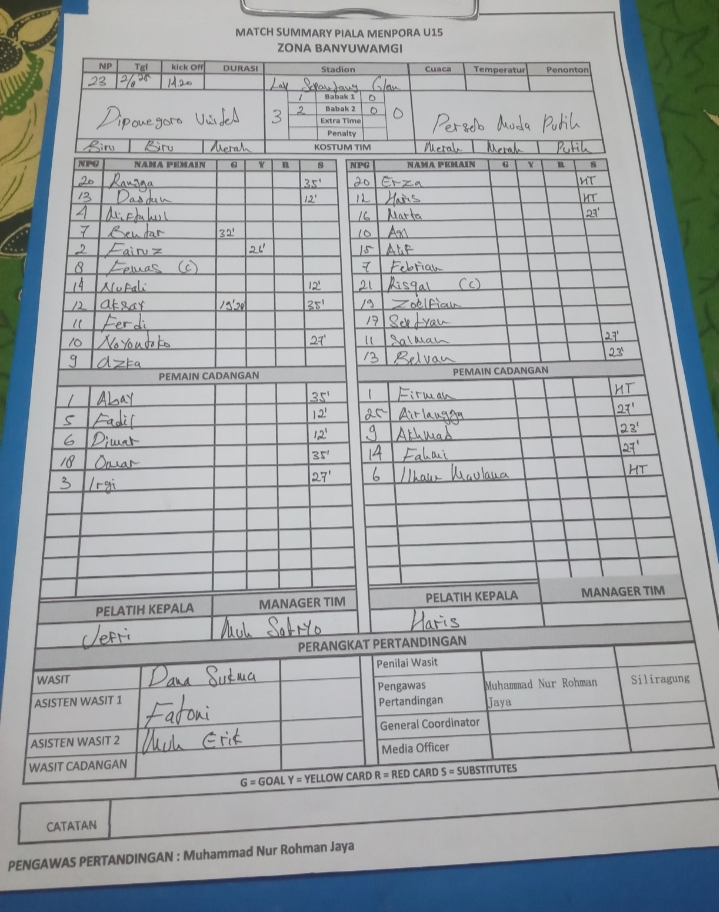 MATCH SUMMARY PIALA MENPORA U15
ZONA BANYUWAMGI
NP Tgl kick Off DURASI Stadion Cuaca Temperatur Penonton
23 14.20 Lap
1 Babak 1 0
Diponegoro 3 2 Babak 2 0 0 Persebo Muda Putih
Extra Time
Penalty
Biru Biru Merah KOSTUM TIM Merah Merah Putih
NPG NAMA PEMAIN G Y R S NPG NAMA PEMAIN G Y R S
20 Rangga 35' 20 Erza HT
13 12' 12 Haris HT
4 Miftahul 16 Marta 27'
7 32' 10
2 Fairuz 15 Alif
8 (c) 7 Febrian
14 Nufali 12' 21 Risqal (c)
12 35' 19
11 Ferdi 17
10 27' 11 Salman 27'
9 Azka 13 Belvan 23'
PEMAIN CADANGAN PEMAIN CADANGAN
1 Abay 35' 1 Firman HT
5 Fadil 12' 25 Airlangga 27'
6 Dimar 12' 9 Akhmad 23'
18 Omar 35' 14 Fahmi 27'
3 Irgi 27' 6 Ilham Maulana HT
PELATIH KEPALA MANAGER TIM PELATIH KEPALA MANAGER TIM
Jefri Muh Satryo Haris
PERANGKAT PERTANDINGAN
WASIT Dana Sukma Penilai Wasit
ASISTEN WASIT 1 Fatoni Pengawas Pertandingan Muhammad Nur Rohman Jaya Siliragung
ASISTEN WASIT 2 Muh Erik General Coordinator
WASIT CADANGAN Media Officer
G = GOAL Y = YELLOW CARD R = RED CARD S = SUBSTITUTES
CATATAN
PENGAWAS PERTANDINGAN : Muhammad Nur Rohman Jaya